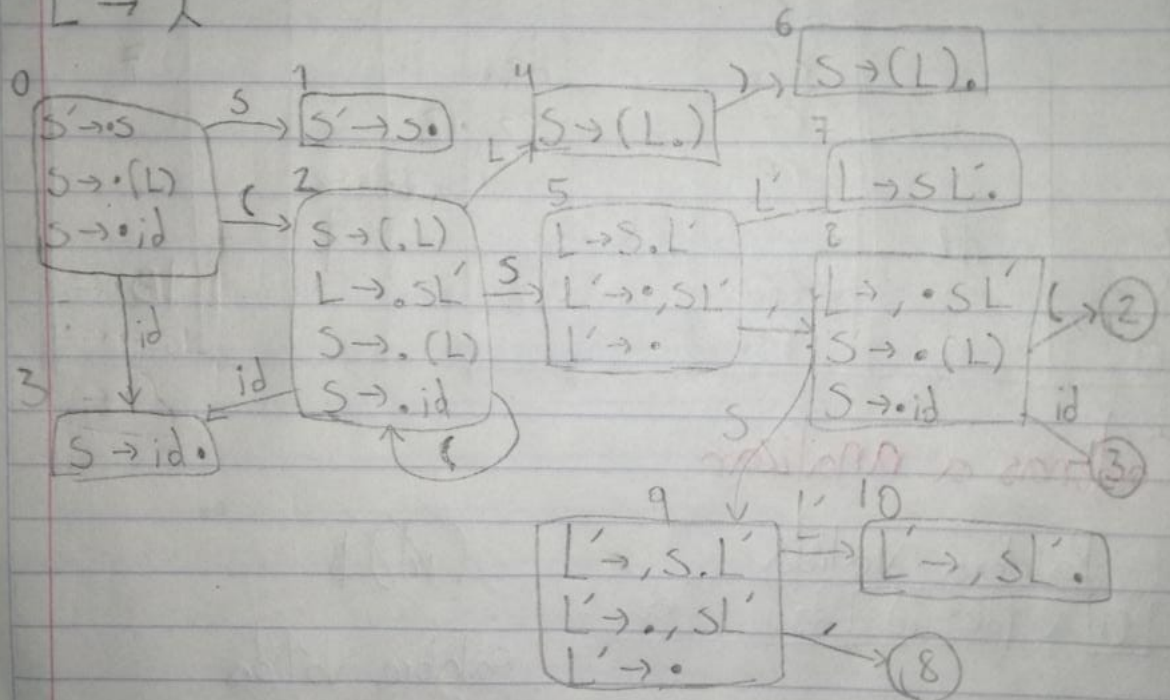 L → λ
0
S' → •S
S → •(L)
S → •id
S
1
S' → S•
(
2
S → (.L)
L → .SL'
S → .(L)
S → .id
(
id
3
S → id•
id
L
4
S → (L.)
)
6
S → (L).
S
5
L → S.L'
L' → •,SL'
L' → •
L'
7
L → SL'.
,
8
L → , •SL'
S → •(L)
S → •id
(
2
id
3
S
9
L' → ,S.L'
L' → .,SL'
L' → •
L'
10
L' → ,SL'.
,
8